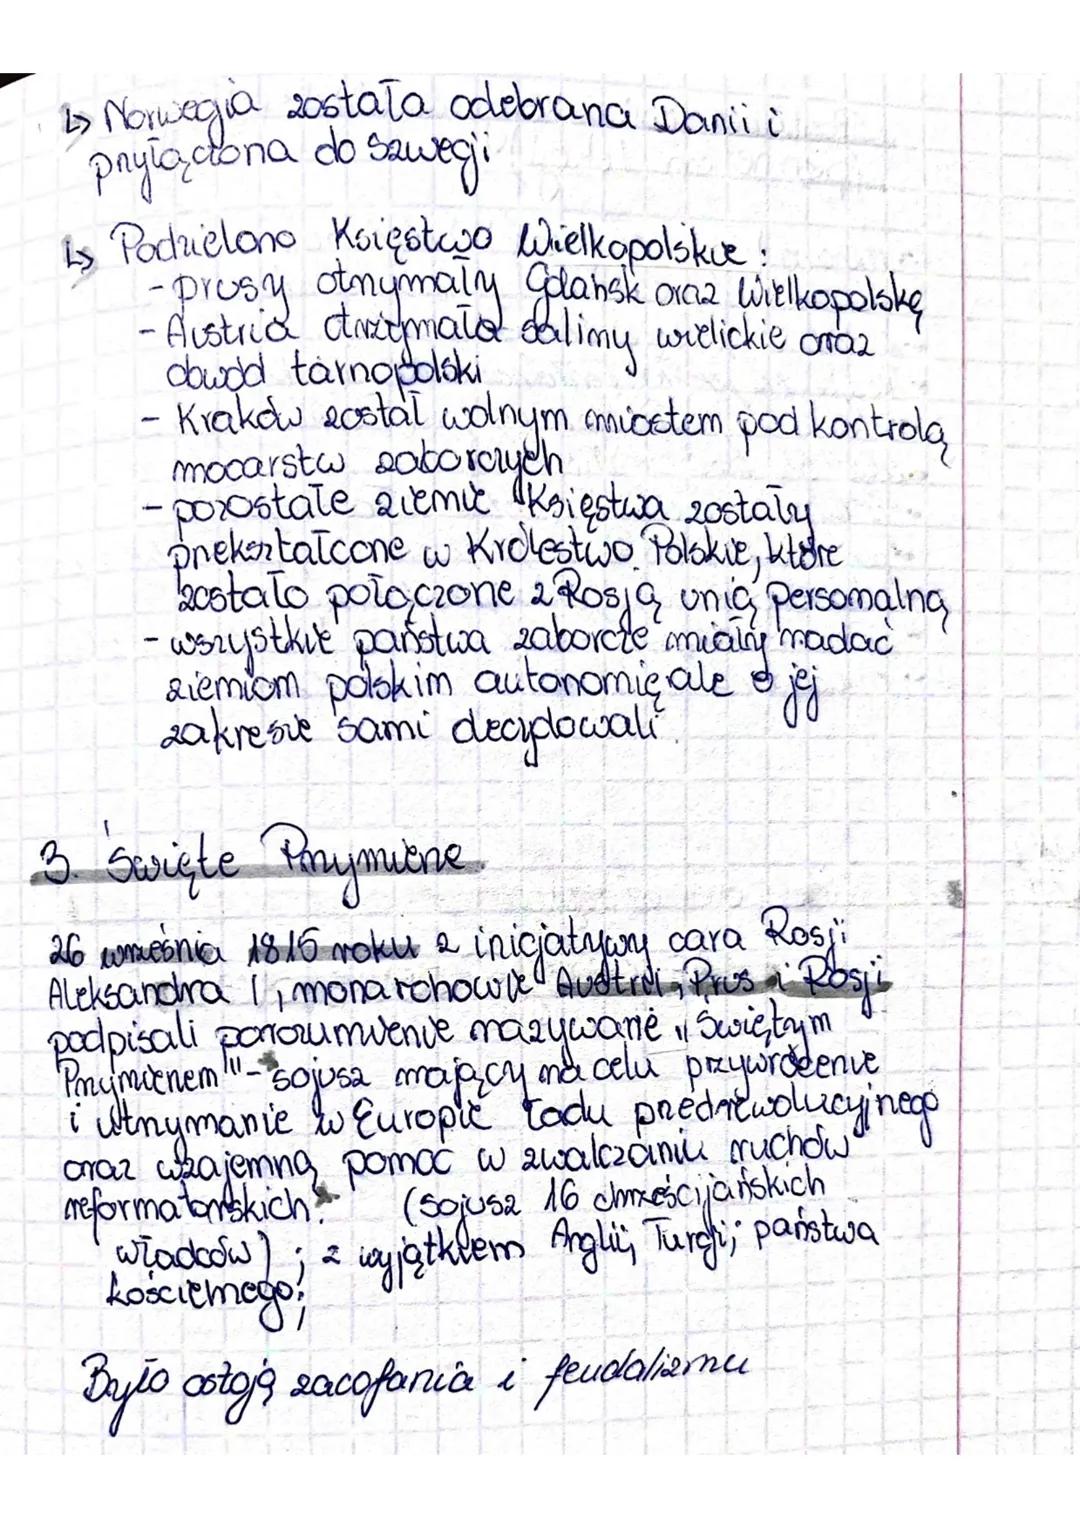 ↳ Norwegia została odebrana Danii i
przyłączona do Szwecji
↳ Podzielono Księstwo Wielkopolskie :
- prusy otrzymały Gdańsk oraz Wielkopolskę
- Austria otrzymała saliny wielickie oraz
obwód tarnopolski
- Kraków został wolnym miastem pod kontrolą
mocarstw zaborczych
- pozostałe ziemie Księstwa zostały
przekształcone w Królestwo Polskie, które
zostało połączone z Rosją unią personalną
- wszystkie państwa zaborcze miały nadać
ziemiom polskim autonomię ale o jej
zakresie sami decydowali.
3. Święte Przymierze.
26 września 1815 roku z inicjatywy cara Rosji
Aleksandra I, monarchowie Austrii, Prus i Rosji
podpisali porozumienie nazywane „Świętym
Przymierzem" - sojusz mający na celu przywrócenie
i utrzymanie w Europie ładu przedrewolucyjnego
oraz wzajemną pomoc w zwalczaniu ruchów
reformatorskich. (sojusz 16 chrześcijańskich
władców) ; z wyjątkiem Anglii; Turcji; państwa
kościelnego;
Było ostoją zacofania i feudalizmu